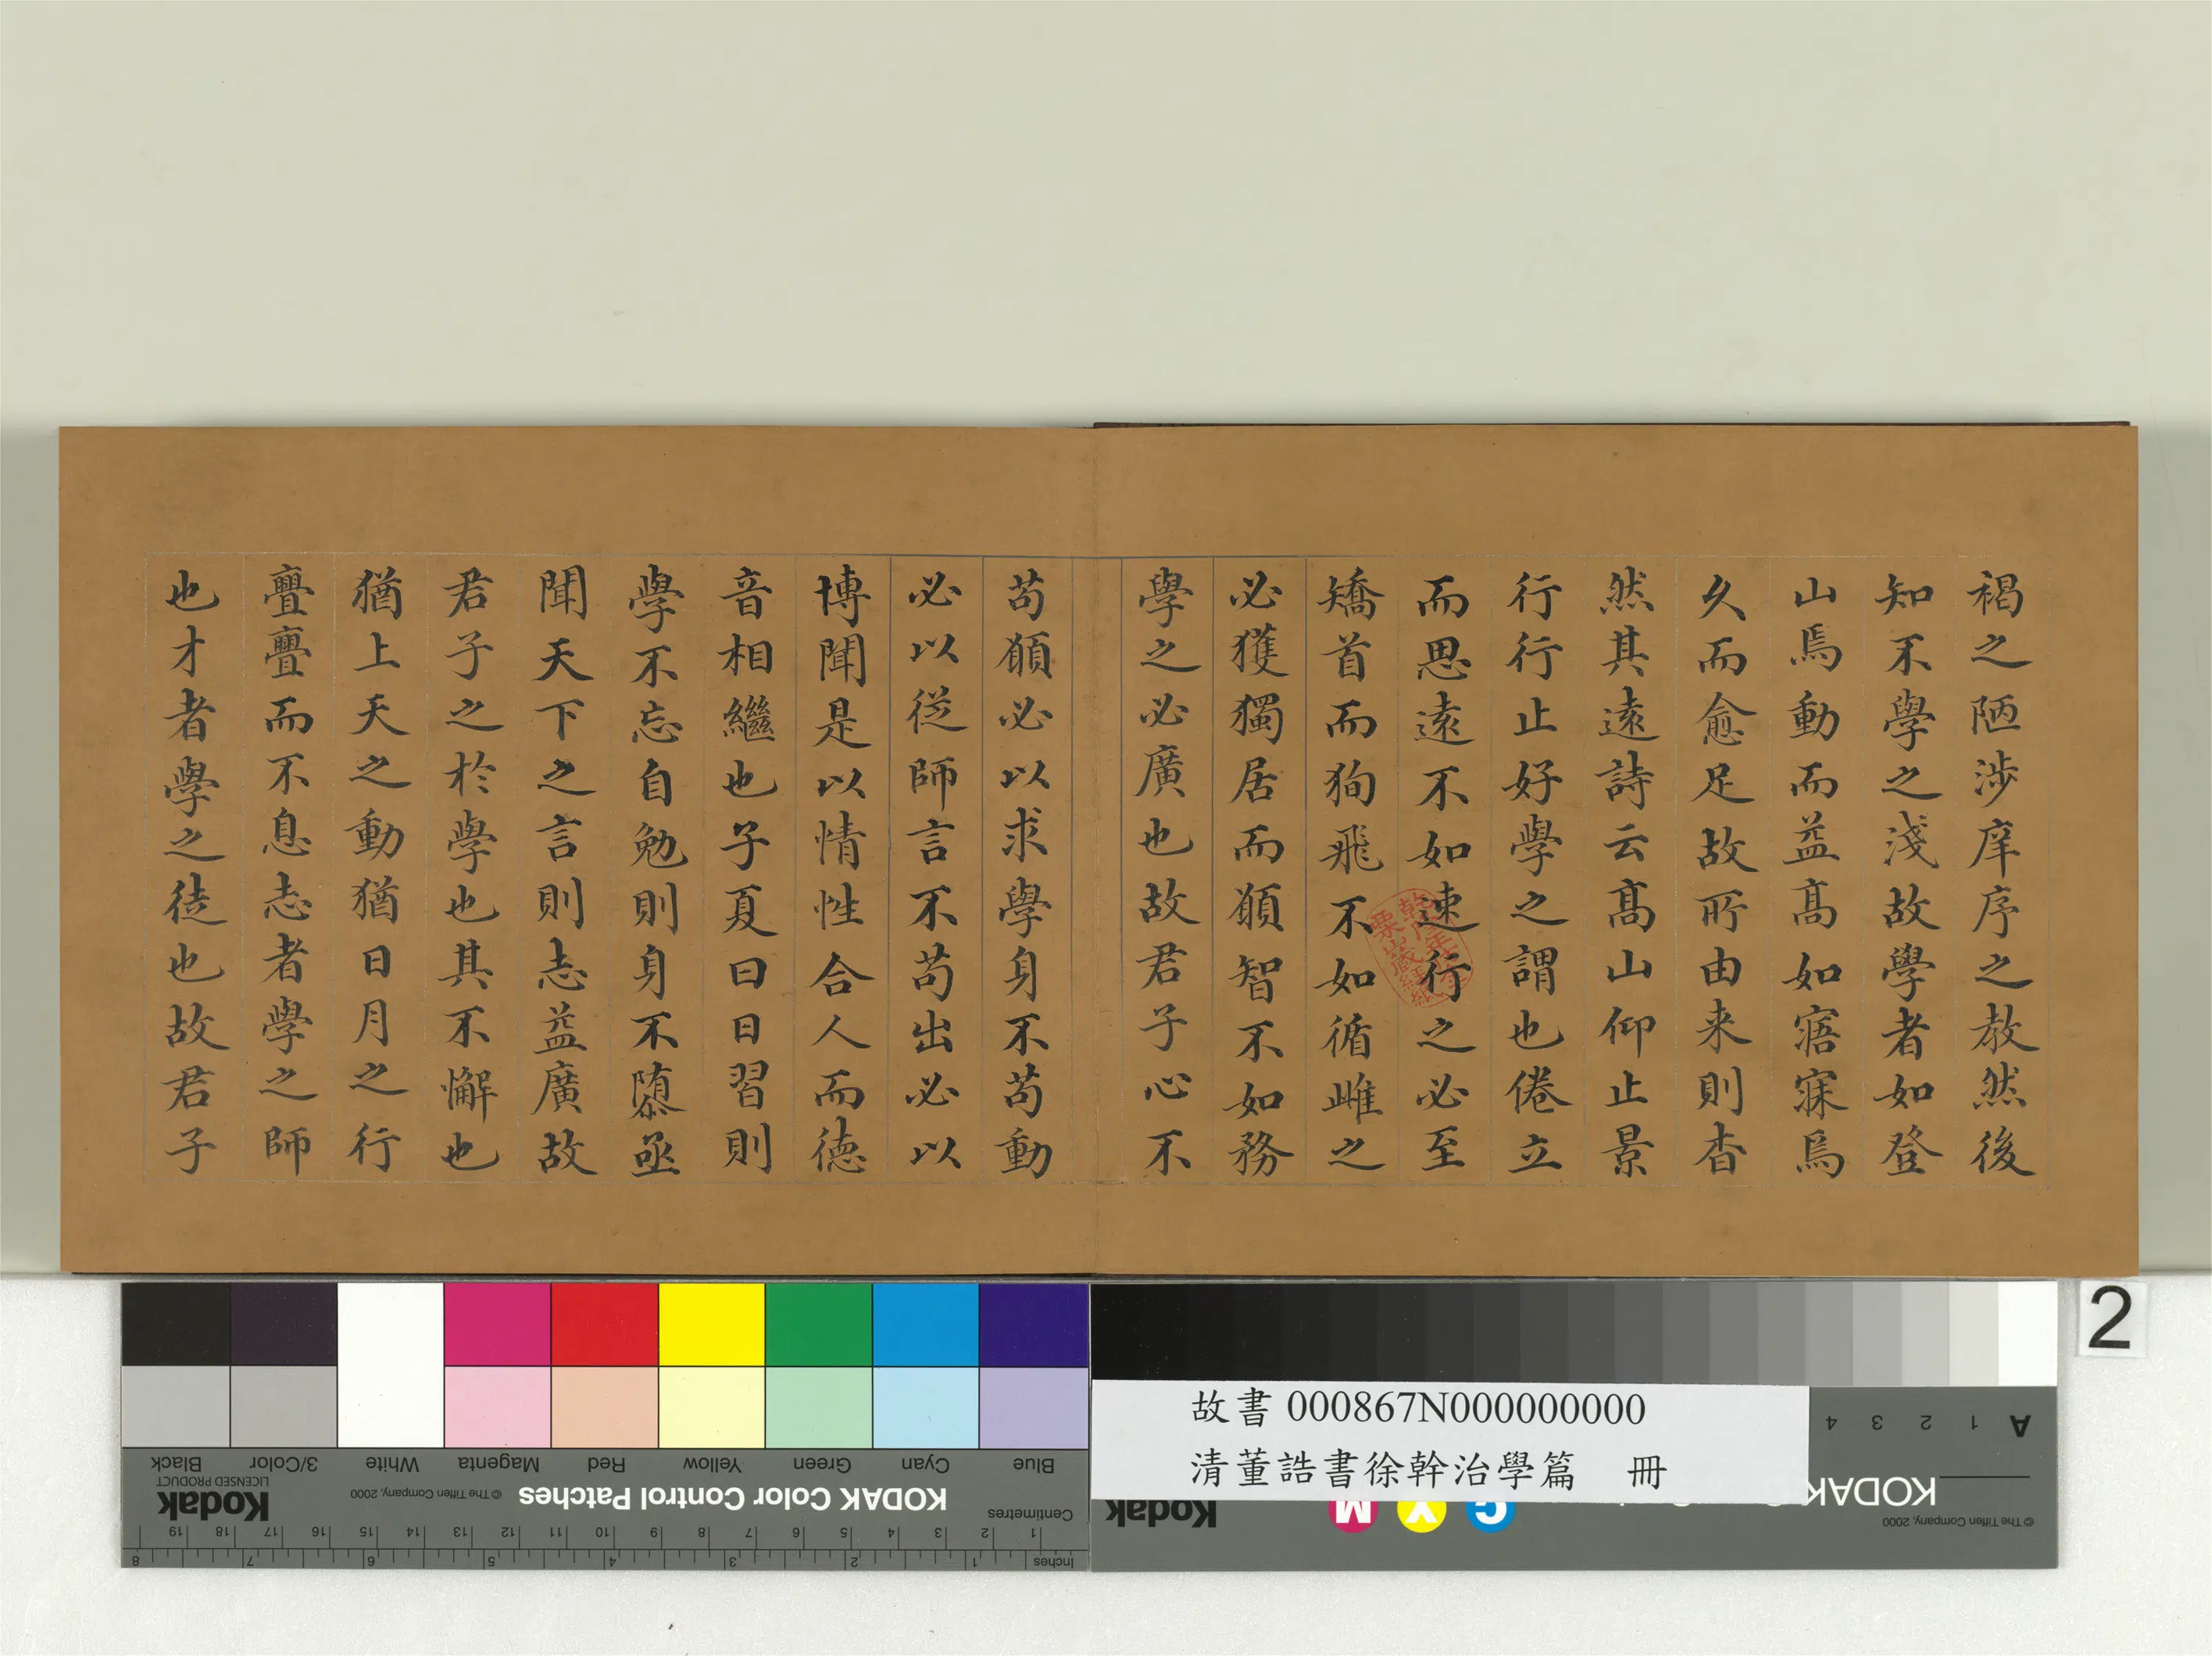 褐之陋涉庠序之教然後
知不學之淺故學者如登
山焉動而益高如寤寐焉
久而愈足故所由来則杳
然其遠詩云高山仰止景
行行止好學之謂也倦立
而思遠不如速行之必至
矯首而狥飛不如循雌之
必獲獨居而願智不如務
學之必廣也故君子心不
苟願必以求學身不苟動
必以從師言不苟出必以
博聞是以情性合人而德
音相繼也子夏曰日習則
學不忘自勉則身不墮亟
聞天下之言則志益廣故
君子之於學也其不懈也
猶上天之動猶日月之行
亹亹而不息志者學之師
也才者學之徒也故君子
乾隆年
粟山藏經紙
2
故書 000867N000000000
清董誥書徐幹治學篇 冊
Blue Cyan Green Yellow Red Magenta White 3/Color Black
KODAK Color Control Patches
© The Tiffen Company, 2000
Kodak
LICENSED PRODUCT
Centimetres
1 2 3 4 5 6 7 8 9 10 11 12 13 14 15 16 17 18 19
Inches
1 2 3 4 5 6 7 8
A 1 2 3 4
KODAK
© The Tiffen Company, 2000
C Y M
Kodak